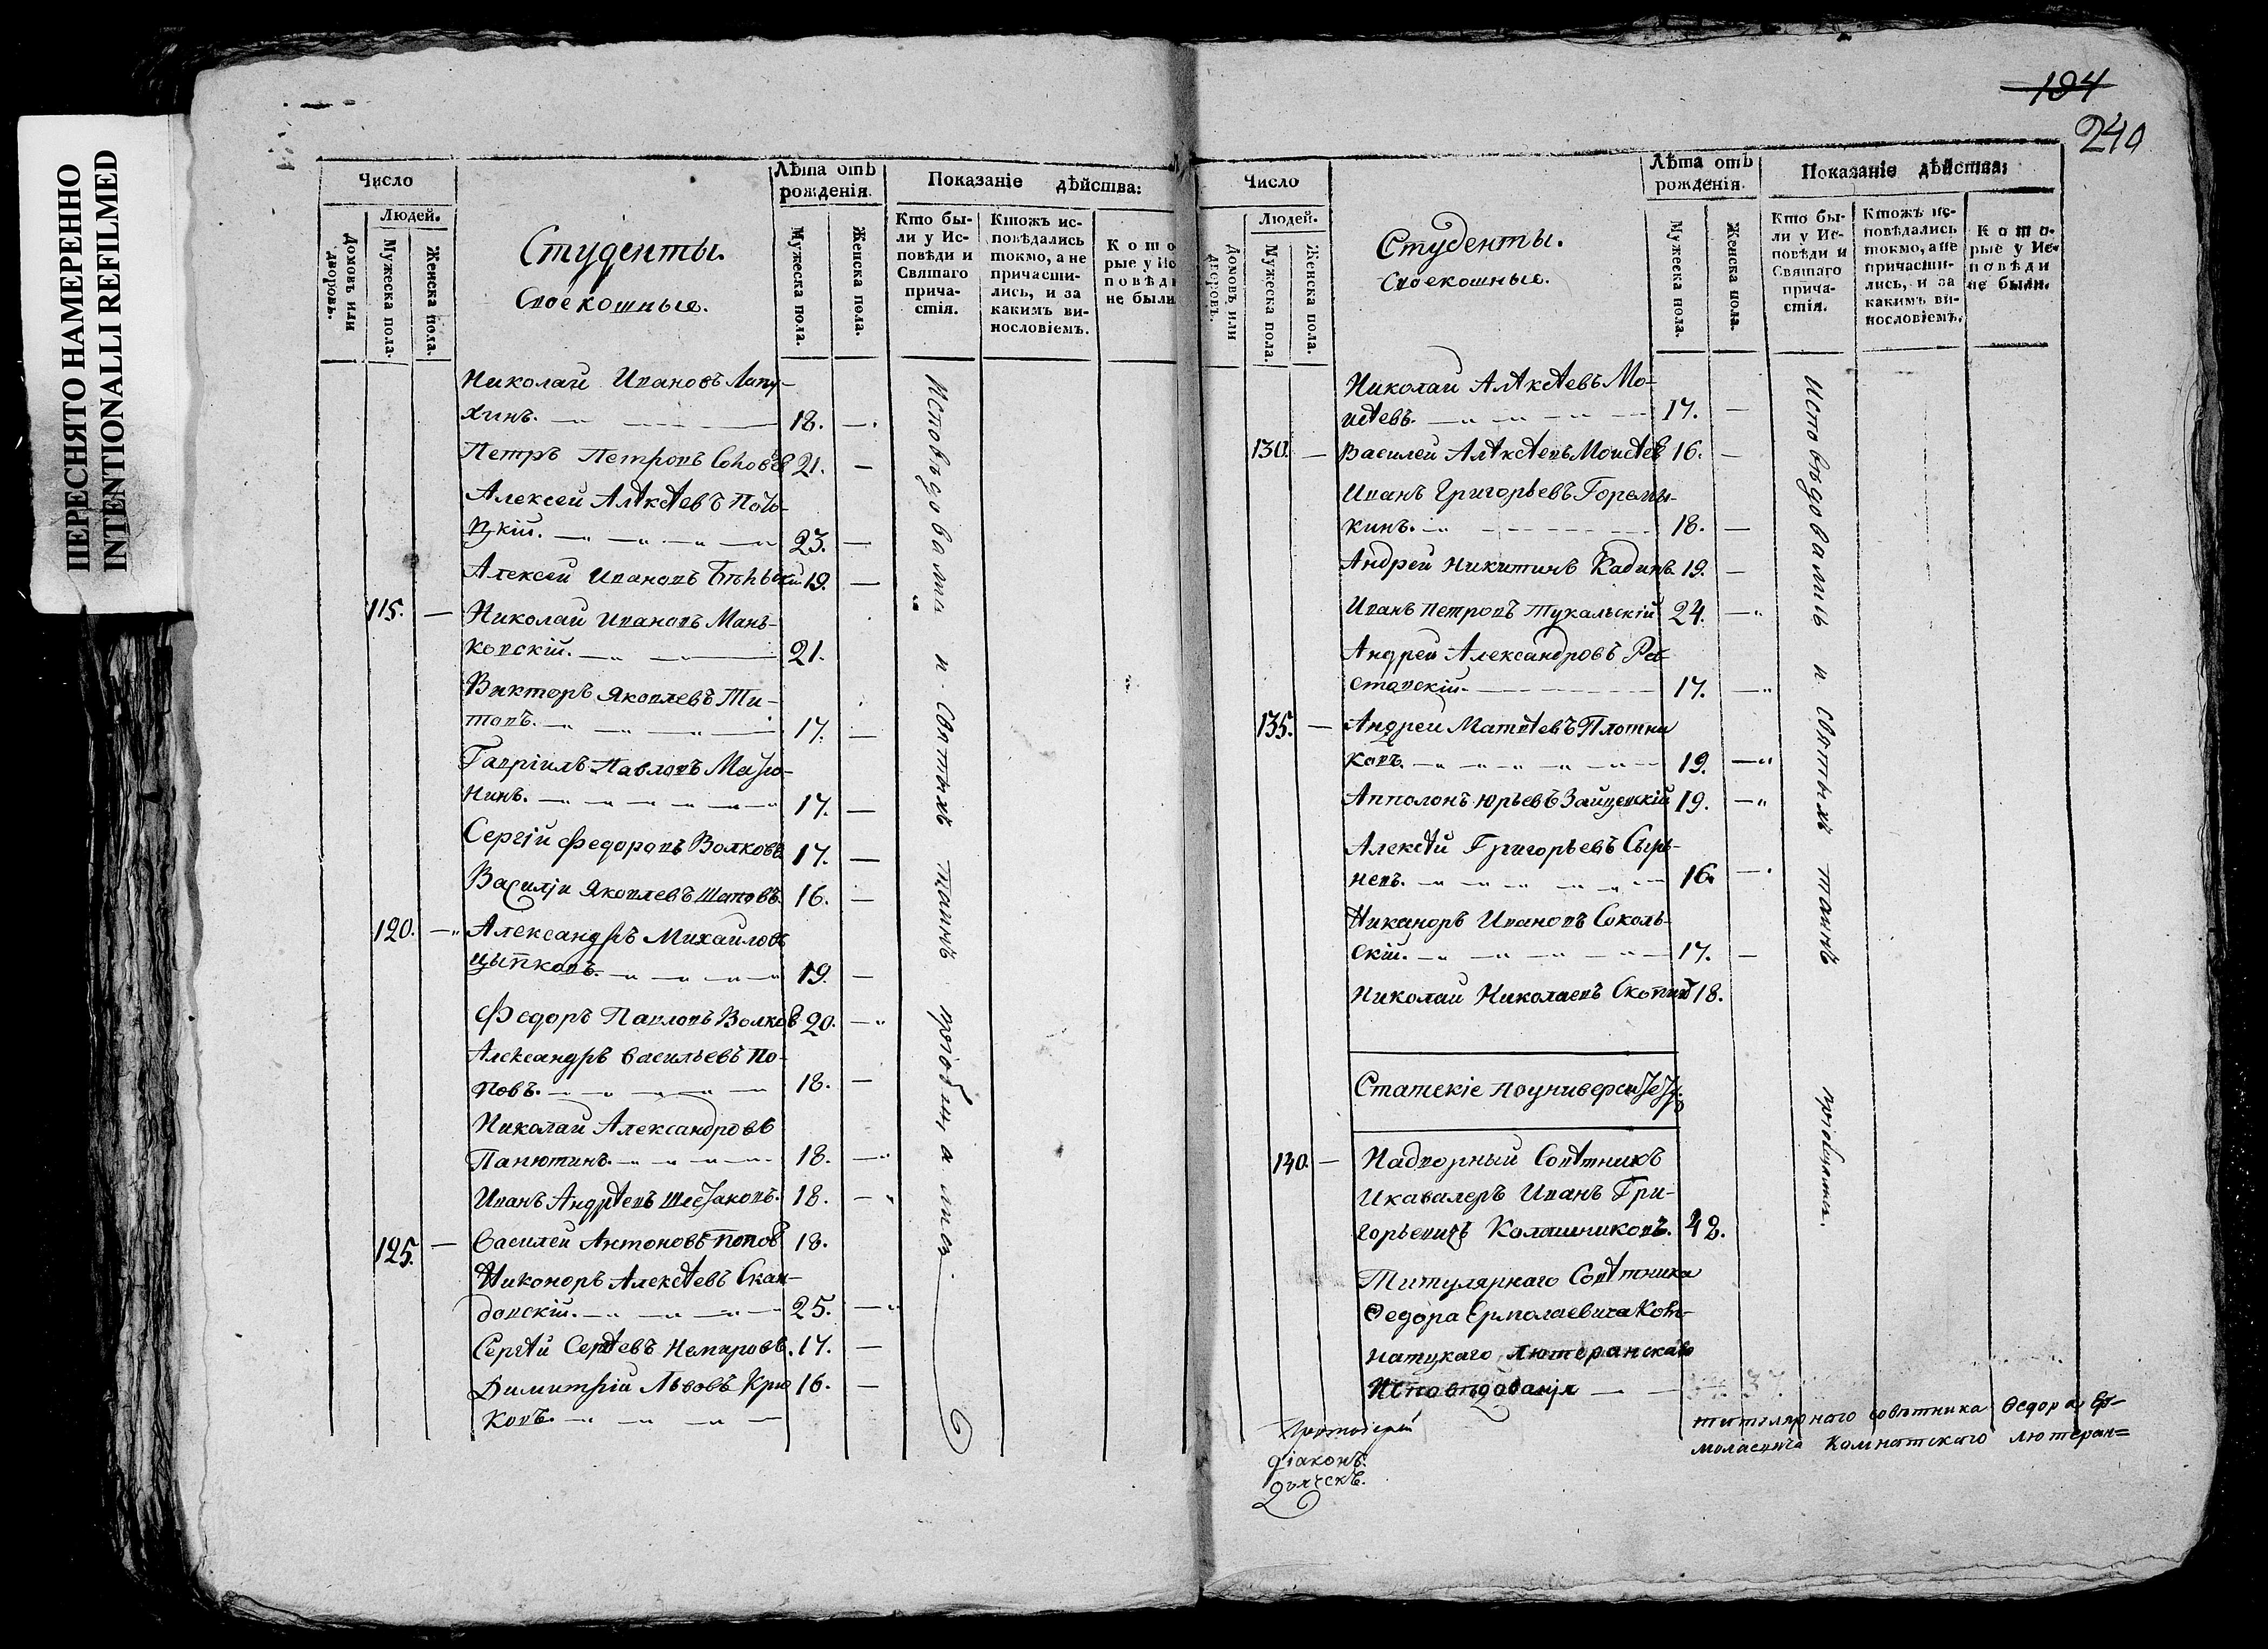 ПЕРЕСНЯТО НАМЕРЕННО
INTENTIONALLI REFILMED
194
240
Число
Людей.
Домовъ или дворовъ.
Мужеска пола.
Женска пола.
Студенты.
Своекошные.
Лѣта отъ рожденія.
Мужеска пола.
Женска пола.
Показаніе дѣйства:
Кто бы-
ли у Ис-
повѣди и
Святаго
прича-
стія.
Ктожъ ис-
повѣдались
токмо, а не
причасти-
лись, и за
какимъ ви-
нословіемъ.
Кото
рые у Ис
повѣди
не были
Николай Ивановъ Лапу-
хинъ. 18.
Петръ Петровъ 21.
Алексей Алѣксѣевъ
цкій. 23.
Алексей Ивановъ 19.
115. Николай Ивановъ Мань-
ковскій. 21.
Викторъ Яковлевъ Ти-
товъ. 17.
Гавріилъ Павловъ
нинъ. 17.
Сергій Федоровъ Волковъ 17.
Василій Яковлевъ 16.
120. Александръ Михаиловъ
Цыпковъ. 19.
Федоръ Павловъ Волковъ 20.
Александръ Васильевъ По-
повъ. 18.
Николай Александровъ
Панютинъ. 18.
Иванъ Андрѣевъ Шестаковъ. 18.
125. Василей Антоновъ Попов 18.
Никоноръ Алексѣевъ Скан-
довскій. 25.
Сергѣй Сергѣевъ Немировъ. 17.
Димитрій Львовъ Крю
ковъ. 16.
Исповѣдовались и святыхъ таинъ приобщались.
Число
Людей.
Домовъ или дворовъ.
Мужеска пола.
Женска пола.
Студенты.
Своекошные.
Лѣта отъ рожденія.
Мужеска пола.
Женска пола.
Показаніе дѣйства:
Кто бы-
ли у Ис-
повѣди и
Святаго
прича-
стія.
Ктожъ ис-
повѣдались
токмо, а не
причасти-
лись, и за
какимъ ви-
нословіемъ.
Кото-
рые у Ис-
повѣди
не были.
Николай Алѣксѣевъ Мо-
исѣевъ. 17.
130. Василей Алѣксѣевъ Моисѣев 16.
Иванъ Григорьевъ Горемы-
кинъ. 18.
Андрей Никитинъ Кадинъ 19.
Иванъ Петровъ Тукальскій 24.
Андрей Александровъ
ставскій. 17.
135. Андрей Матвѣевъ Плотни
ковъ. 19.
Апполонъ Юрьевъ 19.
Алексѣй Григорьевъ Сыр-
невъ. 16.
Никаноръ Ивановъ Соколь-
скій. 17.
Николай Николаевъ 18.
Статскіе по университету.
140. Надворный Совѣтникъ
и кавалеръ Иванъ Гри-
горьевичъ Калашниковъ. 42.
Титулярнаго Совѣтника
Ѳедора Ермолаевича
Лютеранскаго
Исповѣданія 37
Исповѣдовались и святыхъ таинъ приобщались.
Протоіерей
діаконъ.
дьячекъ.
титулярнаго совѣтника Ѳедора Ер-
молаевича лютеран=